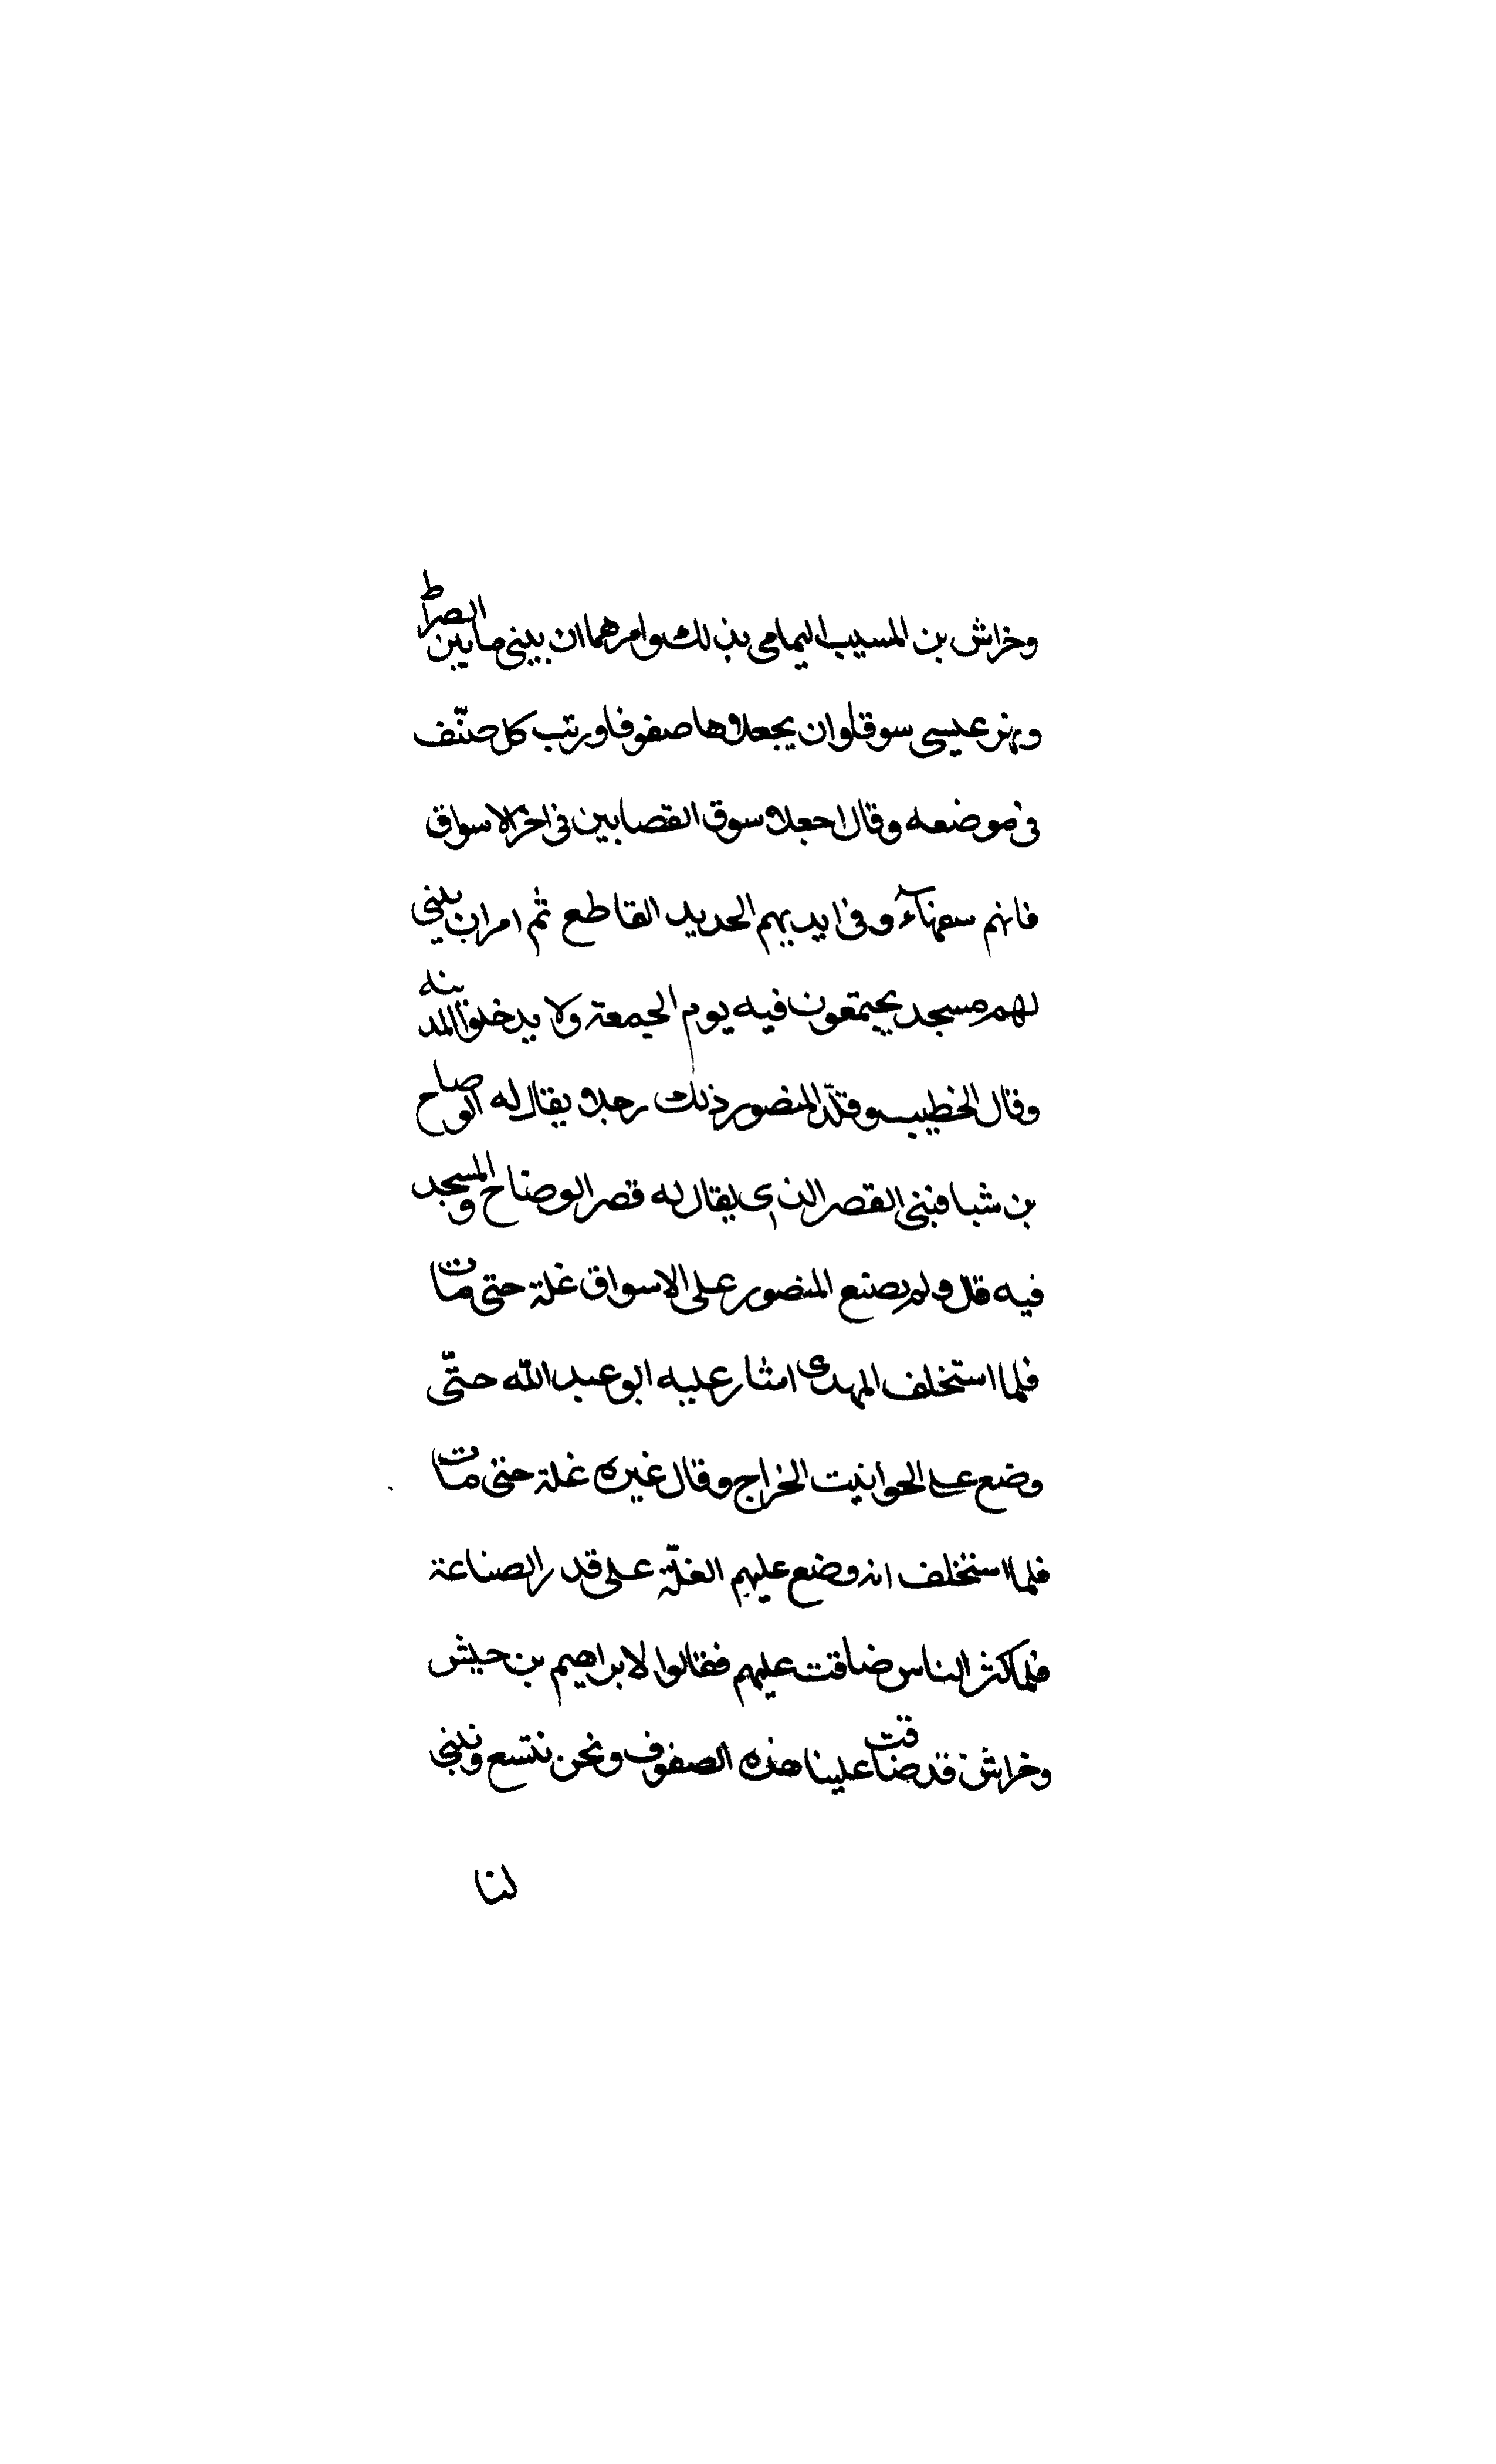 وخراش بن المسيب اليمامى بذلك وامرهما ان يبنى ما بين الصراط
ونهر عيسى سوقا وان يجعلاها صفوفا ورتب كل صنّف
فى موضعه وقال اجعلا سوق القصابين فى اخر الاسواق
فانهم سفهآء وفى ايديهم الحديد القاطع ثم امر ان يبنى
لهم مسجد يجتمعون فيه يوم الجمعة ولا يدخلوا المدينه
وقال الخطيب وقلّد المنصور ذلك رجلا يقال له الوضاح
بن شبا فبنى القصر الذى يقال له قصر الوضاح والمسجد
فيه قال ولم يصنع المنصور على الاسواق غلة حتى مات
فلما استخلف المهدى اشار عليه ابو عبد الله حتّى
وضع على الحوانيت الخراج وقال غيره غلة حتى مات
فلما استخلف انه وضع عليهم الغلّة على قدر الصناعة
فلما كثر الناس ضاقت عليهم فقالوا لابراهيم بن حبيش
وخراش قد ضاقت علينا هذه الصفوف ونحن نتسع ونبنى
لنا